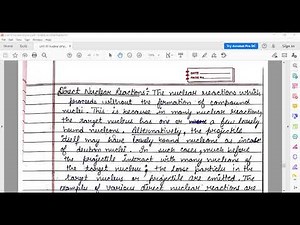 DATE
Direct Nuclear Reactions: The nuclear reactions which
proceeds without the formation of compound
nuclei. This is because in many nuclear reactions
the target nucleus has one or a few loosely
bound nucleons. Alternatively, the projectile
itself may have loosely bound nucleons as incase
of deutron nuclei. In such cases, much before
the projectile interact with many nucleons of
the target nucleus, the loose particle in
the target nucleus or projectile are emitted. The
example of various direct nuclear reactions are